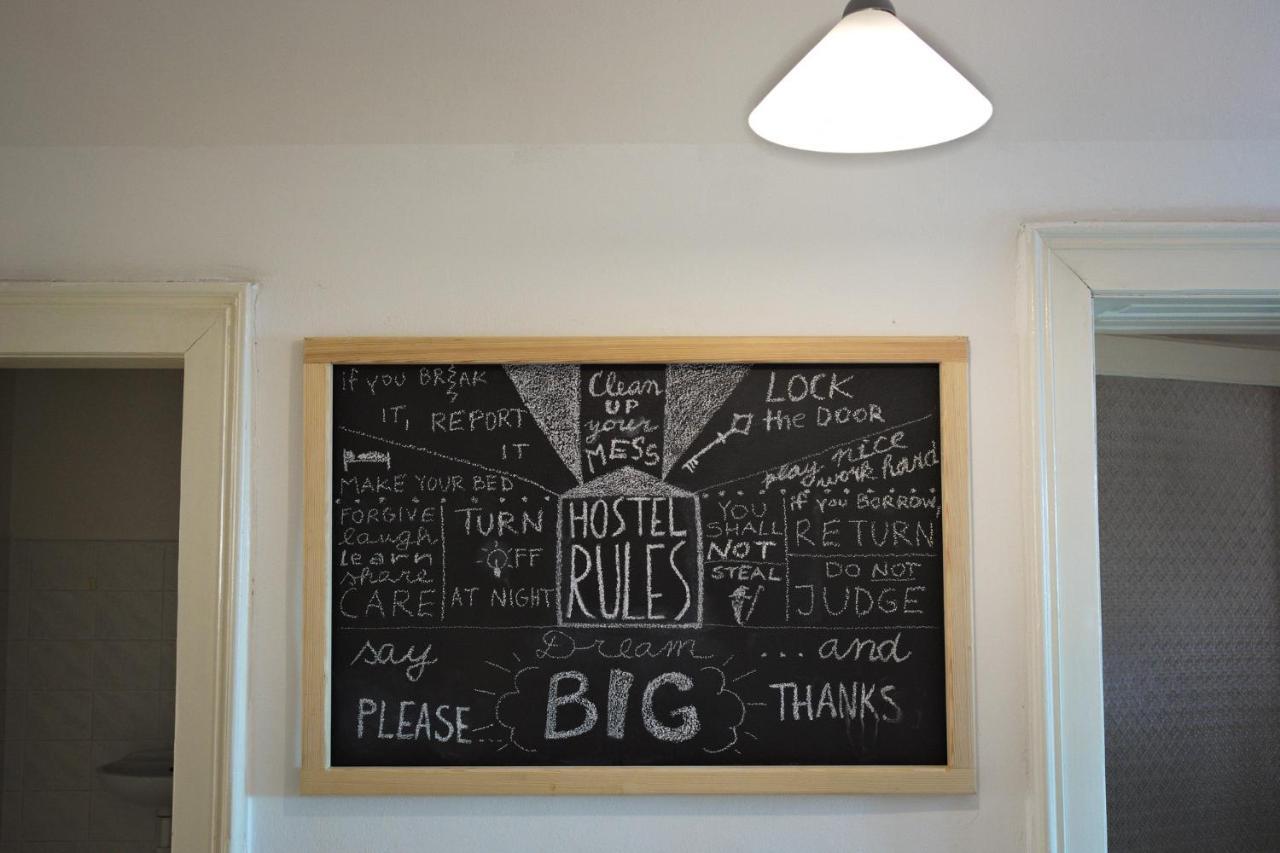 if you BREAK
IT, REPORT
IT
Clean
UP
your
MESS
LOCK
the DOOR
play nice
work hard
MAKE YOUR BED
FORGIVE
laugh
learn
share
CARE
TURN
OFF
AT NIGHT
HOSTEL
RULES
YOU
SHALL
NOT
STEAL
if you BORROW,
RETURN
DO NOT
JUDGE
say
PLEASE...
Dream
BIG
... and
THANKS